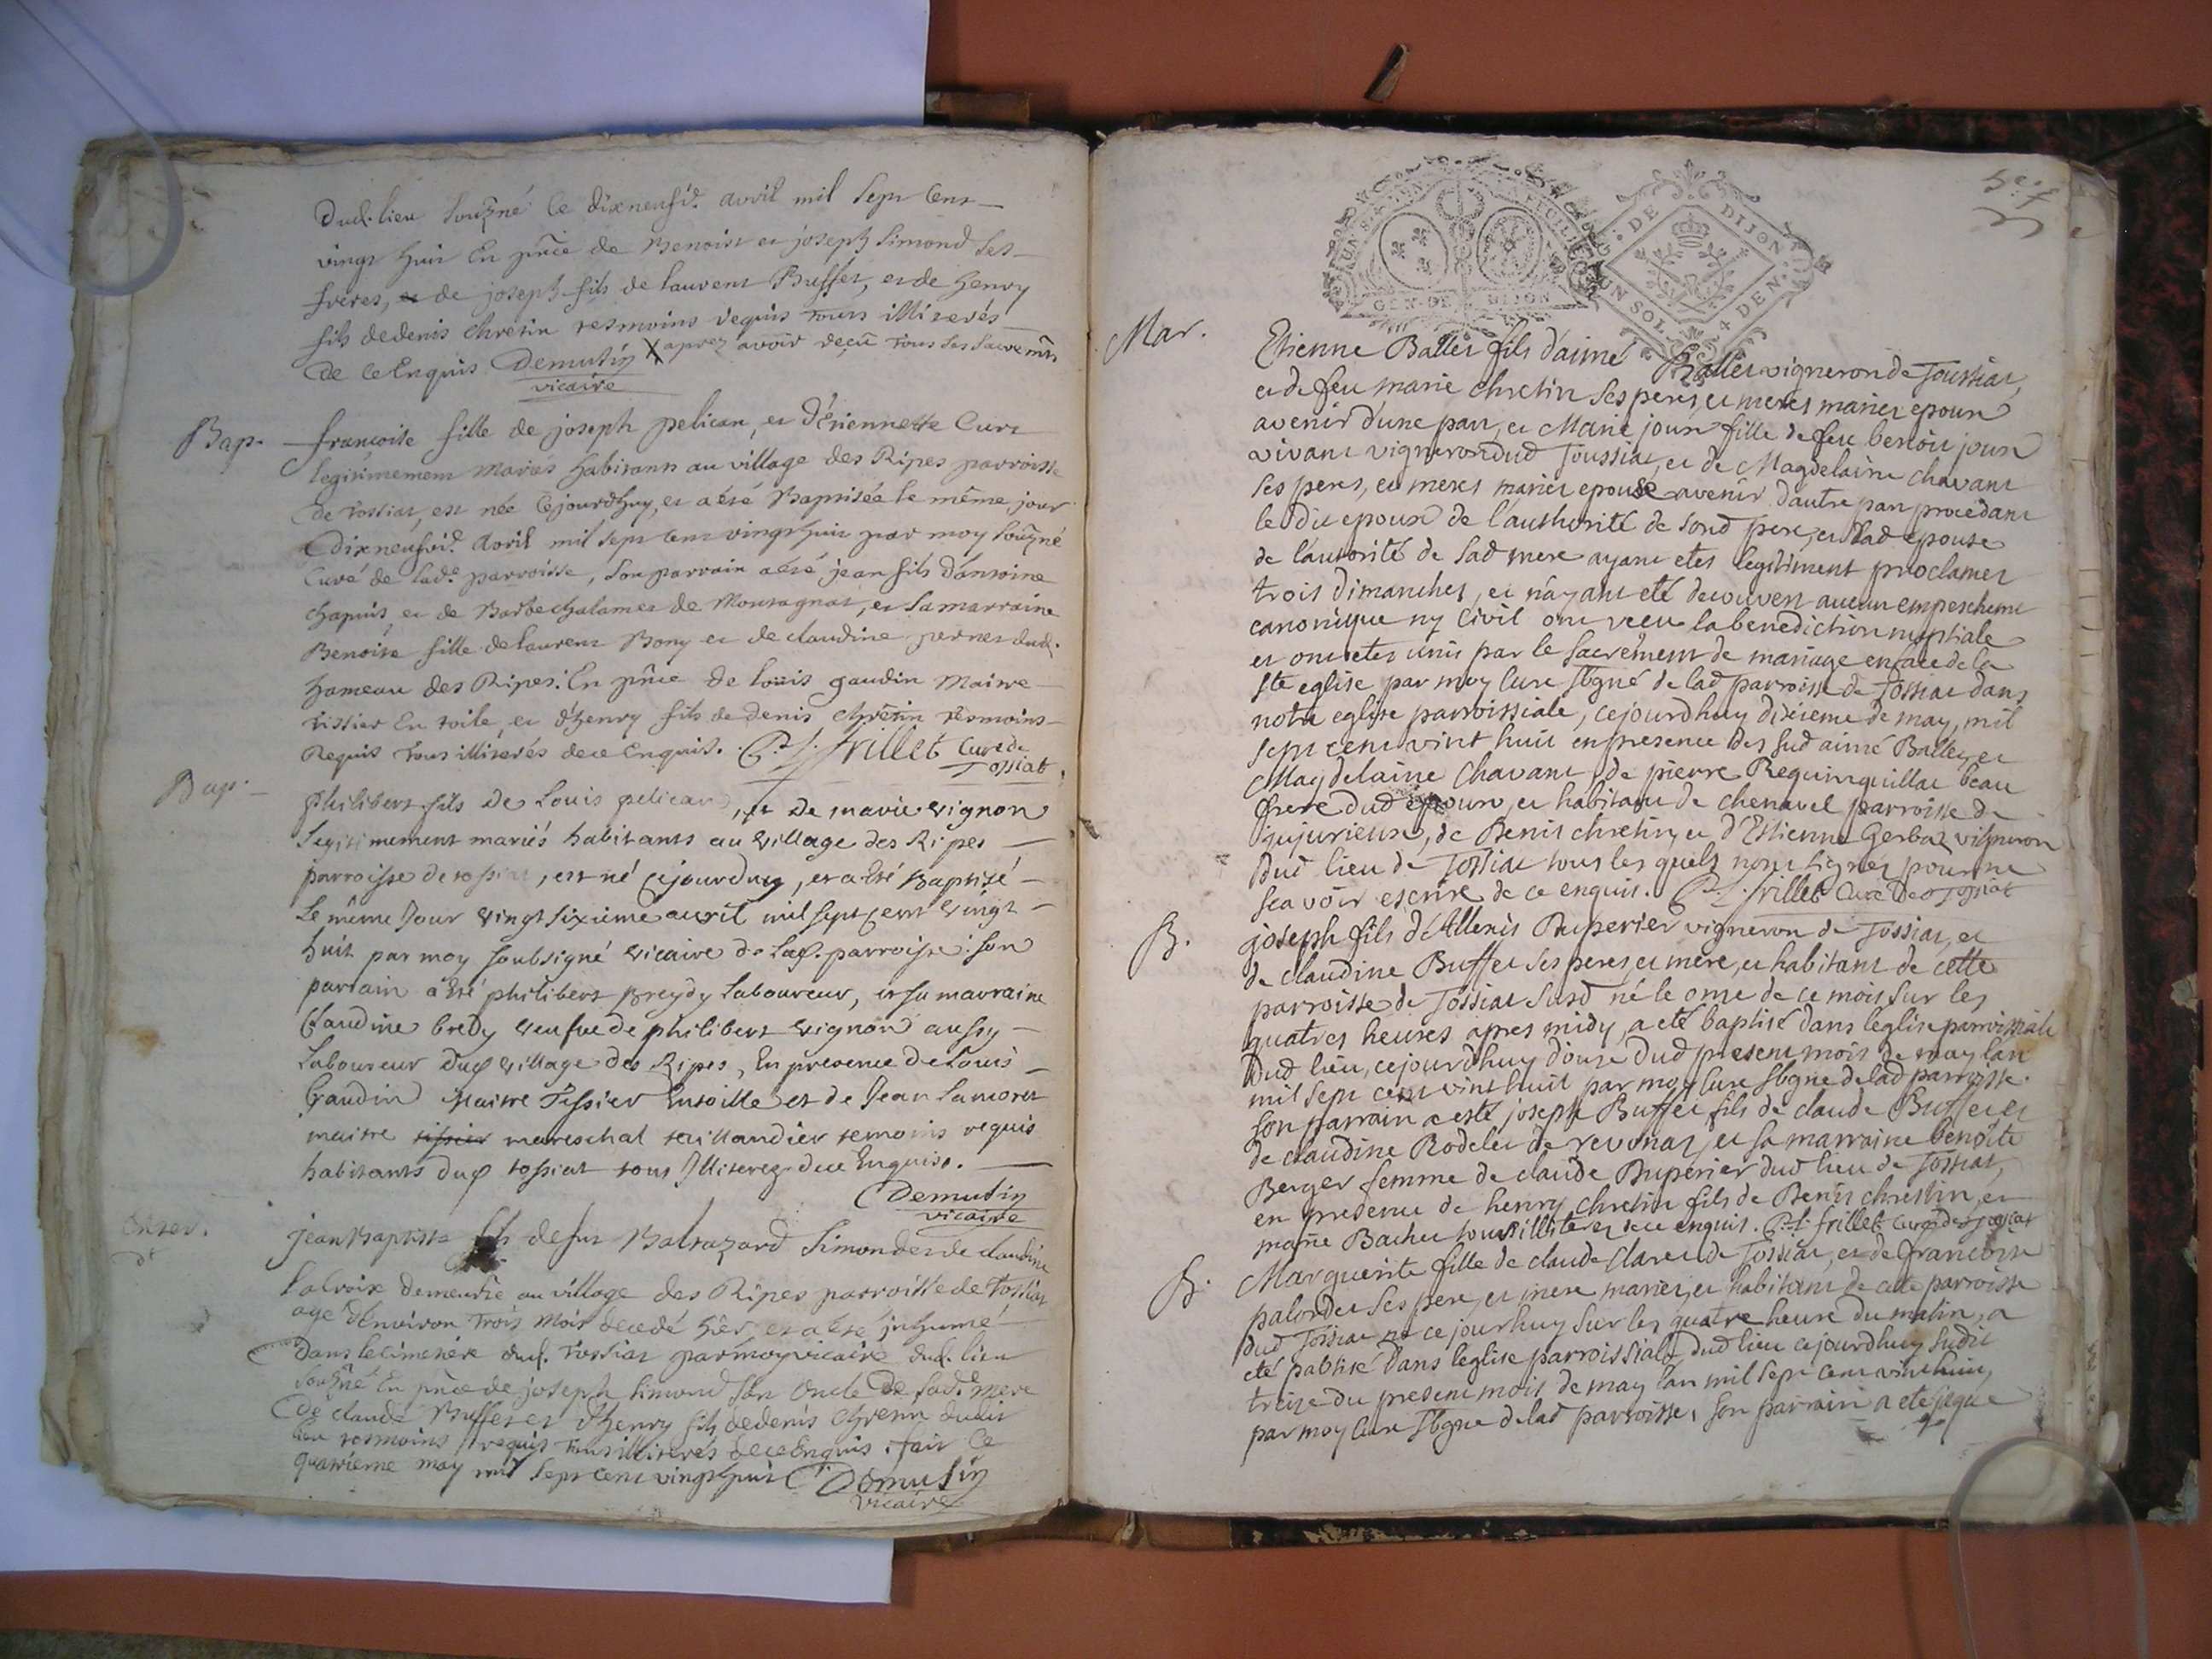 Dud. lieu souzné ce dixneufvi.e avvil mil sept cent
vingt huit En pñce de Benoist et joseph Simond ses
freres, et de joseph fils de laurent Buffet, et de henry
fils de denis chretin tesmoins requis tous illiterés
de ce Enquis Demutin X apres avoir reçu tous ses sacremts
vicaire
Bap. francoise fille de joseph pelican, et d'Etiennette Curt
legitimement mariés habitants au village des Ripes parroisse
de tossiat, est née cejourdhuy, et a été Baptisée le même jour
dixneufvi.e avril mil sept cent vingt huit par moy souzné
Curé de lad.e parroisse, son parrain a été jean fils d'antoine
chapuis et de Barbe chalamet de Montagnat, et sa marraine
Benoite fille de laurent Bony et de claudine pernet dud.
hameau des Ripes. En pñce de louis gaudin Maitre
tissier En toile, et d'henry fils de denis chrétin tesmoins
Requis tous illiterés de ce Enquis. P. f. frillet Curé de
Tossiat
Bap. philibert fils de Louis pelican, et de marie vignon
legitimement mariés habitants au village des Ripes
parroisse de tossiat, est né cejourduy, et a Eté Baptisé
Le même Jour vingt sixiéme avril mil sept cent vingt
huit par moy soubsigné vicaire de lad. parroisse: son
parrain a Eté philibert Breydy laboureur, et sa marraine
Claudine bredy veufve de philibert vignon aussy
Laboureur dud village des Ripes, En presence de Louis
Gaudin Maitre Tissier En toille et de Jean Lamorit
maitre tissier mareschal taillandier temoins requis
habitants dud tossiat tous Illiterez de ce Enquiss.
Demutin
vicaire
Enter.
jean Baptiste fils de feu Baltazard Simond et de claudine
lacroix demeurée au village des Ripes parroisse de Tossiat
agé d'Environ trois Mois decedé hier et a été inhumé
Dans le cimetiere dud. tossiat par moy vicaire dud. lieu
souzné En pñce de joseph Simond son Oncle De sad.e Mere
De claude Buffet et d'henry fils de denis chretin dudit
lieu tesmoins requis tous illiterés de ce Enquis. fait ce
quatrieme may mil sept cent vingt huit Demutin
vicaire
UN SOL 4 DEN
GEN. DE DIJON
DE DIJON
UN SOL 4 DEN.
Mar. Etienne Ballet fils d'aimé Ballet vigneron de Toussiat,
et de feu marie chretin ses peres et meres mariez epoux
avenir d'une part, et Marie joux fille de feu benoit joux
vivant vigneron dud Toussiat, et de Magdelaine chavant
ses peres, et meres mariez epouse avenir d'autre part procedant
le dit epoux de l'authorité de sond pere, et lad epouse
de l'autorité de sad mere ayant etes legitiment proclamez
trois dimanches, et n'ayant eté decouvert aucun empeschemt
canonique ny civil ont receu la benediction nuptiale
et ont etez unis par le sacrement de mariage en face de la
ste eglise par moy Cure sbgné de lad parroisse de Tossiat dans
notre eglise parroissiale, cejourdhuy dixieme de may, mil
sept cent vint huit en presence des sud aimé Ballet, et
Magdelaine Chavant de pierre Requinquillat beau
frere dud epoux, et habitant de chenavel parroisse de
jujurieux, de Denis chretin, et d'Estienne Gerbaz vigneron
dud lieu de Tossiat tous les quels nont signez pour ne
scavoir escrire de ce enquis. P. f. frillet Curé De Tossiat
B. joseph fils d'Allexis Duperier vigneron de Tossiat, et
de claudine Buffet ses peres, et mere, et habitant de cette
parroisse de Tossiat susd né le onze de ce mois sur les
quatres heures apres midy, a eté baptisé dans leglise parroissiale
dud lieu, cejourdhuy douze dud present mois de may lan
mil sept cent vint huit par moy cure sbgne de lad parroisse.
son parrain a esté joseph Buffet fils de claude Buffet et
de claudine Rodelet de revonaz, et sa marraine benoite
Berger femme de claude Duperier dud lieu de Tossiat,
en presence de henry chretin fils de Denis chrestin, et
marie Bachet tous illiterez de ce enquis. P. f. frillet Curé de Tossiat
B. Marguerite fille de claude Claret de Tossiat, et de francoise
palordet ses pere, et mere mariez, et habitant de cette parroisse
dud Tossiat né ce jourhuy sur les quatre heure du matin, a
eté pabtisé dans leglise parroissiale dud lieu cejourdhuy sudit
treize du present mois de may lan mil sept cent vint huit,
par moy Cure sbgne de lad parroisse, son parrain a eté